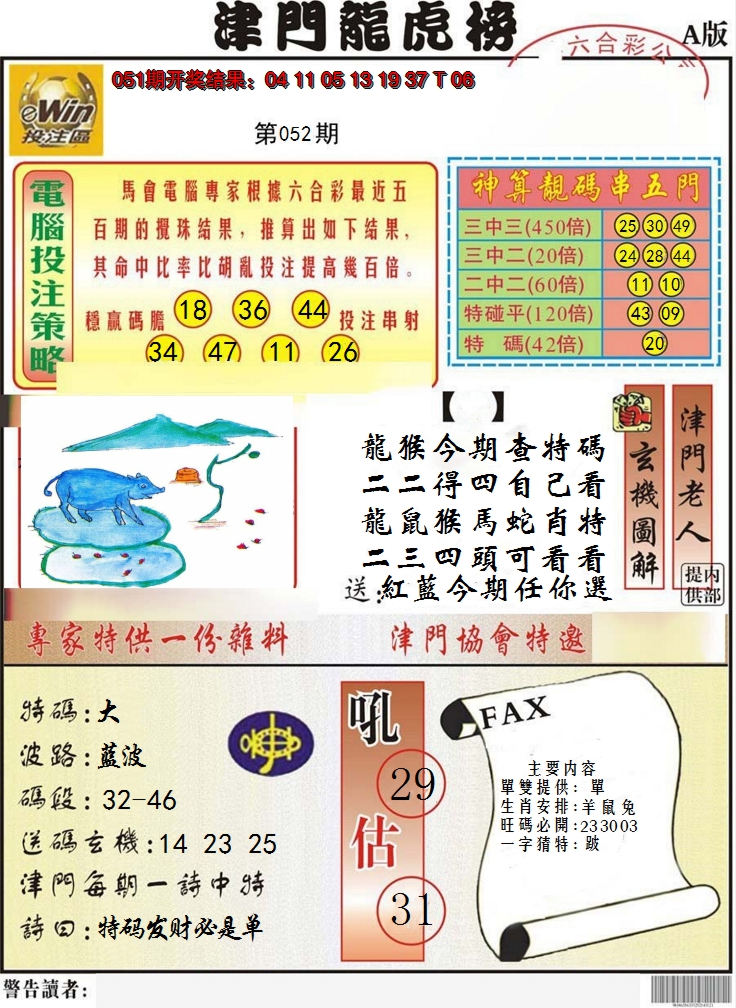 津門龍虎榜
A版
六合彩公
eWin
投注區
051期开奖结果：04 11 05 13 19 37 T 06
第052期
電腦投注策略
馬會電腦專家根據六合彩最近五
百期的攪珠结果，推算出如下结果，
其命中比率比胡亂投注提高幾百倍。
穩赢碼膽 18 36 44 投注串射
34 47 11 26
神算靚碼串五門
三中三(450倍) 25 30 49
三中二(20倍) 24 28 44
二中二(60倍) 11 10
特碰平(120倍) 43 09
特 碼(42倍) 20
【 】
龍猴今期查特碼
二二得四自己看
龍鼠猴馬蛇肖特
二三四頭可看看
送:紅藍今期任你選
玄機圖解
津門老人
内部提供
專家特供一份雜料
津門協會特邀
特碼:大
波路:藍波
碼段:32-46
送碼玄機:14 23 25
津門每期一詩中特
詩曰:特码发财必是单
吼
29
估
31
FAX
主要内容
單雙提供: 單
生肖安排:羊鼠兔
旺碼必開:233003
一字猜特:跛
警告讀者: